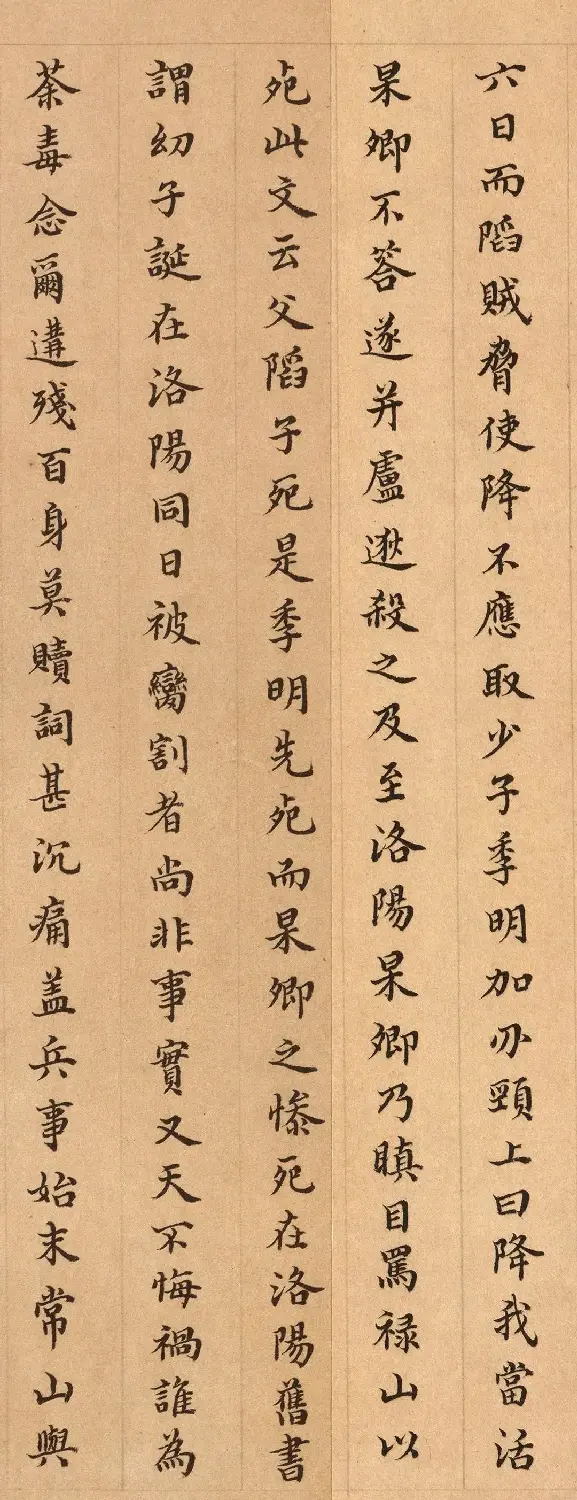 六日而䧟賊脅使降不應取少子季明加刃頸上曰降我當活
杲卿不荅遂并盧逖殺之及至洛陽杲卿乃瞋目罵禄山以
死此文云父䧟子死是季明先死而杲卿之慘死在洛陽舊書
謂幼子誕在洛陽同日被臠割者尚非事實又天不悔禍誰為
荼毒念爾遘殘百身莫贖詞甚沉痛盖兵事始末常山與